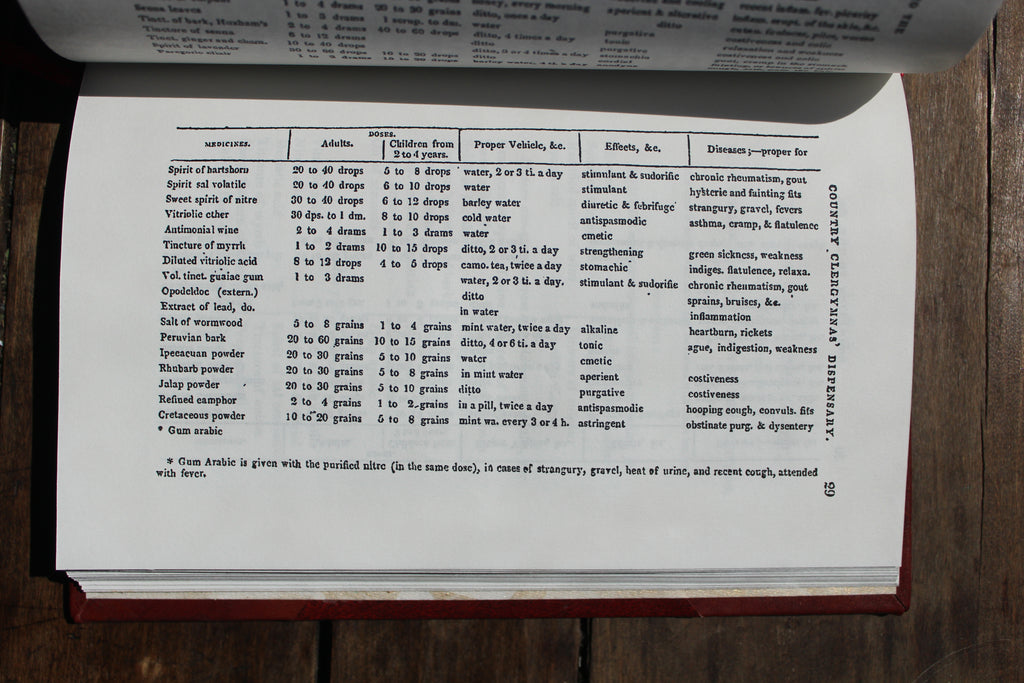 Senna leaves 1 to 4 drams
Tinct. of bark, Huxham's 1 to 3 drams ditto, once a day
Tincture of senna 2 to 4 drams 40 to 60 drops water purgative
Tinct. ginger and cham. 6 to 12 drams ditto tonic
Spirit of lavender 10 to 40 drops ditto purgative
Paregoric elixir
MEDICINES. DOSES. Adults. Children from 2 to 4 years. Proper Vehicle, &c. Effects, &c. Diseases;—proper for
Spirit of hartshorn 20 to 40 drops 5 to 8 drops water, 2 or 3 ti. a day stimulant & sudorific chronic rheumatism, gout
Spirit sal volatile 20 to 40 drops 6 to 10 drops water stimulant hysteric and fainting fits
Sweet spirit of nitre 30 to 40 drops 6 to 12 drops barley water diuretic & febrifuge strangury, gravel, fevers
Vitriolic ether 30 dps. to 1 dm. 8 to 10 drops cold water antispasmodic asthma, cramp, & flatulence
Antimonial wine 2 to 4 drams 1 to 3 drams water emetic
Tincture of myrrh 1 to 2 drams 10 to 15 drops ditto, 2 or 3 ti. a day strengthening green sickness, weakness
Diluted vitriolic acid 8 to 12 drops 4 to 6 drops camo. tea, twice a day stomachic indiges. flatulence, relaxa.
Vol. tinct. guaiac gum 1 to 3 drams water, 2 or 3 ti. a day. stimulant & sudorific chronic rheumatism, gout
Opodeldoc (extern.) ditto sprains, bruises, &c.
Extract of lead, do. in water inflammation
Salt of wormwood 5 to 8 grains 1 to 4 grains mint water, twice a day alkaline heartburn, rickets
Peruvian bark 20 to 60 grains 10 to 15 grains ditto, 4 or 6 ti. a day tonic ague, indigestion, weakness
Ipecacuan powder 20 to 30 grains 5 to 10 grains water emetic
Rhubarb powder 20 to 30 grains 5 to 8 grains in mint water aperient costiveness
Jalap powder 20 to 30 grains 5 to 10 grains ditto purgative costiveness
Refined camphor 2 to 4 grains 1 to 2 grains in a pill, twice a day antispasmodic hooping cough, convuls. fits
Cretaceous powder 10 to 20 grains 5 to 8 grains mint wa. every 3 or 4 h. astringent obstinate purg. & dysentery
* Gum arabic
* Gum Arabic is given with the purified nitre (in the same dose), in cases of strangury, gravel, heat of urine, and recent cough, attended
with fever.
COUNTRY CLERGYMNAS' DISPENSARY. 29